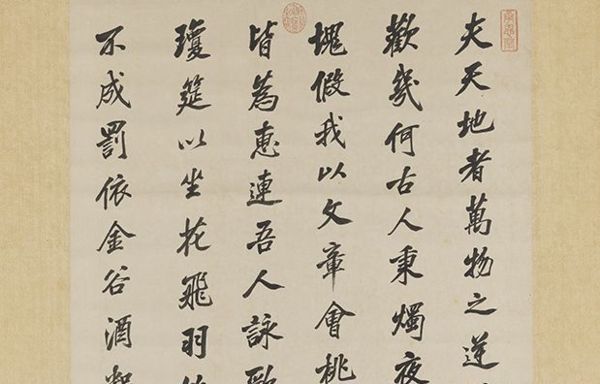 夫天地者萬物之逆
歡幾何古人秉燭夜
塊假我以文章會桃
皆為惠連吾人詠歌
瓊筵以坐花飛羽
不成罰依金谷酒數